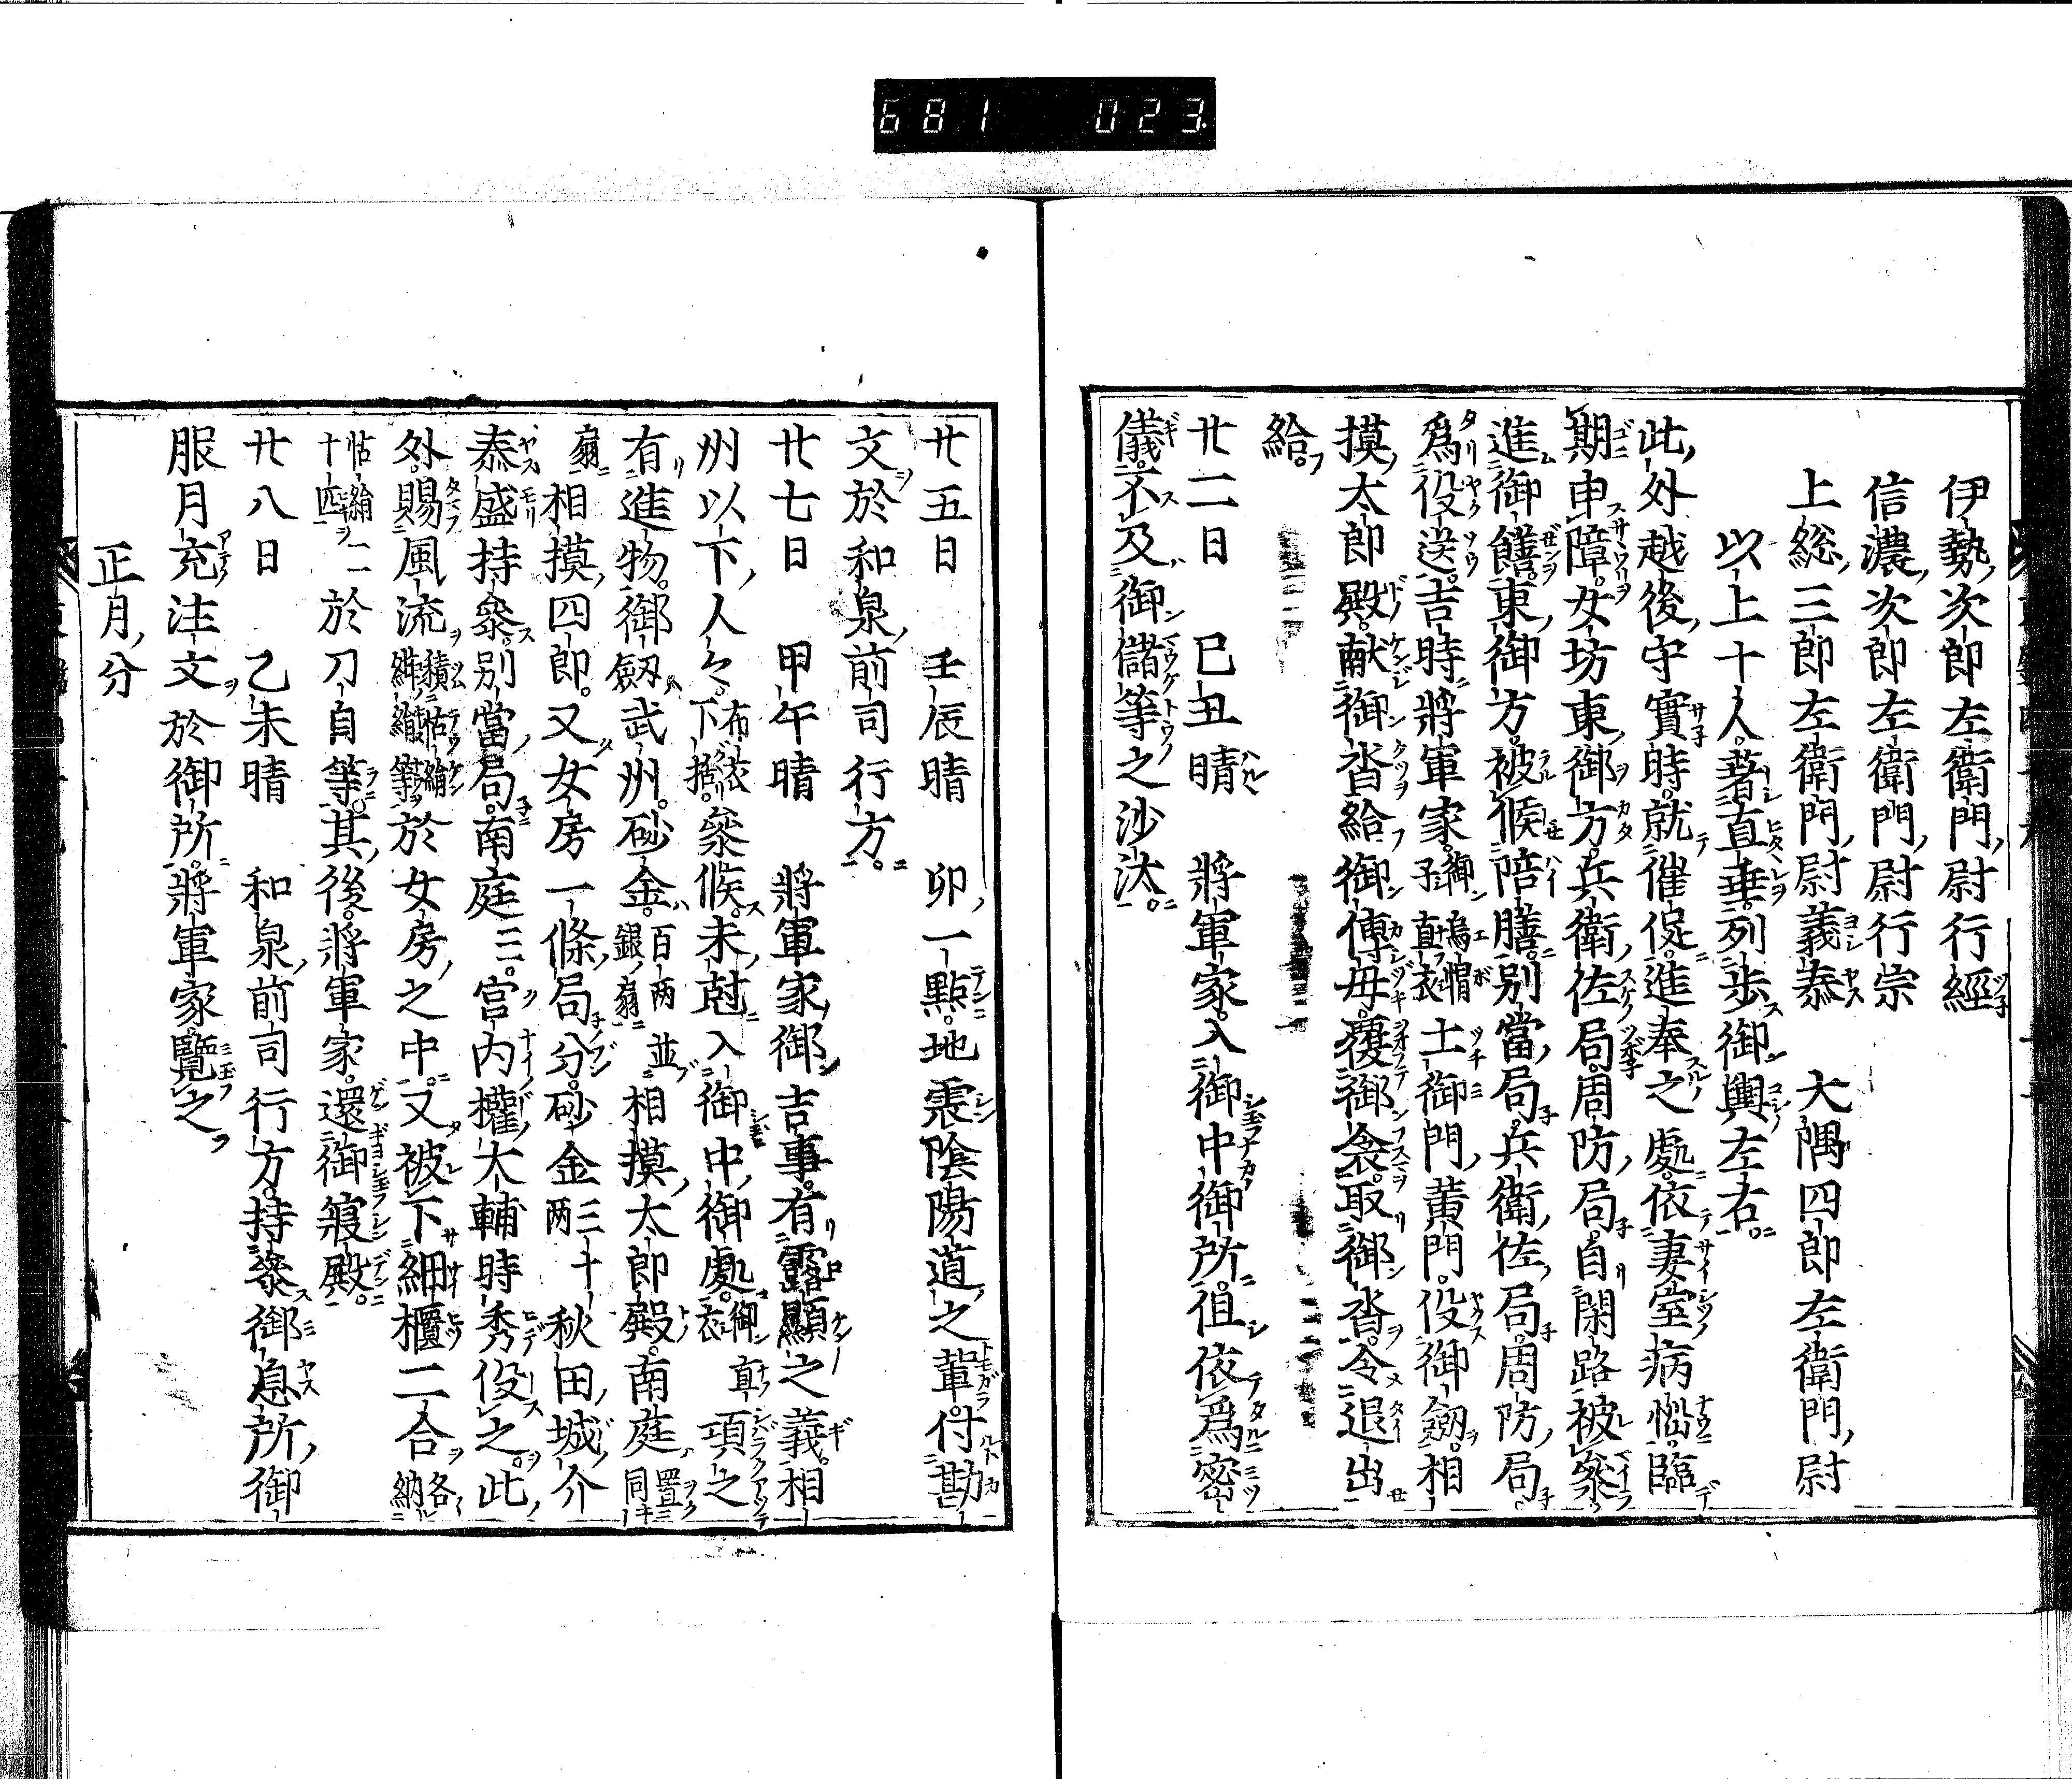 681 023
伊勢次郎左衛門尉行經
信濃次郎左衛門尉行宗
上総三郎左衛門尉義泰 大隅四郎左衛門尉
以上十人著直垂列歩御輿左右
此外越後守實時就催促進奉之處依妻室病悩臨
期申障女坊東御方兵衛佐局周防局自閑路被參
進御饍東御方被候陪膳別當局兵衛佐局周防局
爲役送吉時將軍家御烏帽子直衣土御門黄門役御劔相
摸太郎殿献御沓給御傅母覆御衾取御沓令退出
給
廿二日 巳丑晴 將軍家入御中御所徂依爲密
儀不及御儲等之沙汰
廿五日 壬辰晴 卯一點地震陰陽道之輩付勘
文於和泉前司行方
廿七日 甲午晴 將軍家御吉事有露顯之義相
州以下人々布衣下括參候未尅入御中御處御直衣項之
有進物御劔武州砂金百両銀扇並相摸太郎殿南庭置同
扇相摸四郎又女房一條局分砂金三十両秋田城介
泰盛持參別當局南庭三宮内權大輔時秀役之此
外賜風流積帖絹紺絹等於女房之中又被下細櫃二合各納
帖絹十匹二於刀自等其後將軍家還御寢殿
廿八日 乙未晴 和泉前司行方持參御息所御
服月充注文於御所將軍家覽之
正月分